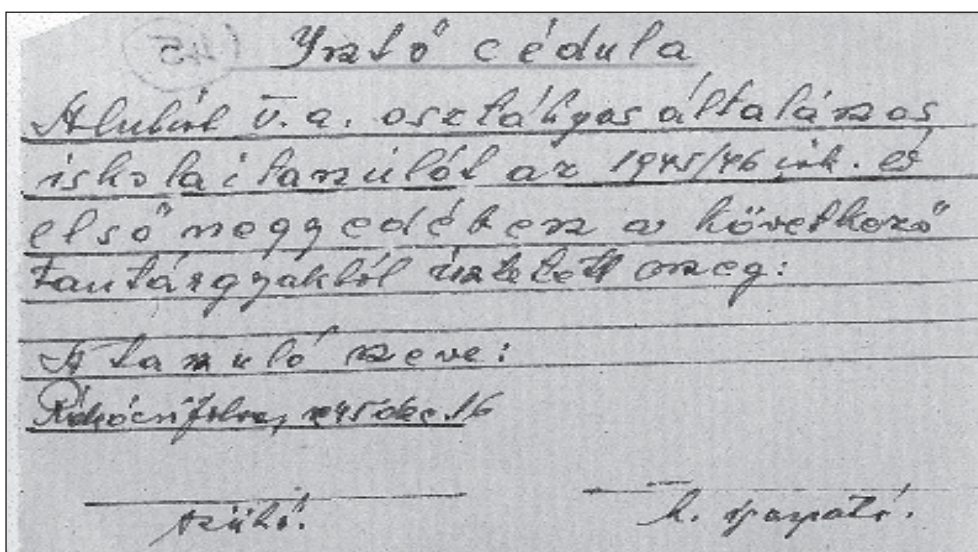 Intő cédula
Alulírt V. a. osztályos általános
iskolai tanulót az 1945/46 isk. év
első negyedében a következő
tantárgyakból intetett meg:
A tanuló neve:
Rákóczifalva, 945 dec. 16
szülő. h. igazgató.